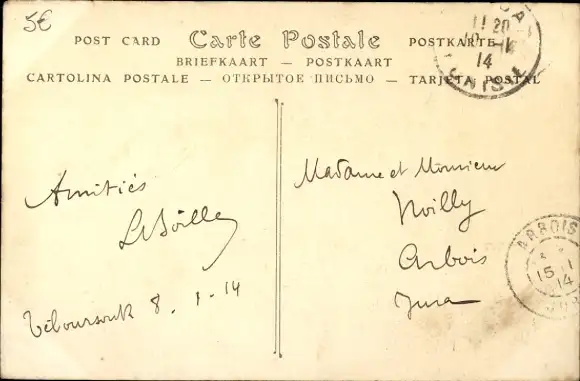 5€
POST CARD Carte Postale POSTKARTE
BRIEFKAART — POSTKAART
CARTOLINA POSTALE — ОТКРЫТОЕ ПИСЬМО — TARJETA POSTAL
11 20
14
TUNISIE
Amitiés
Téboursouk 8. 1-14
Madame et Monsieur
Noilly
Arbois
Jura
ARBOIS
15 1
14